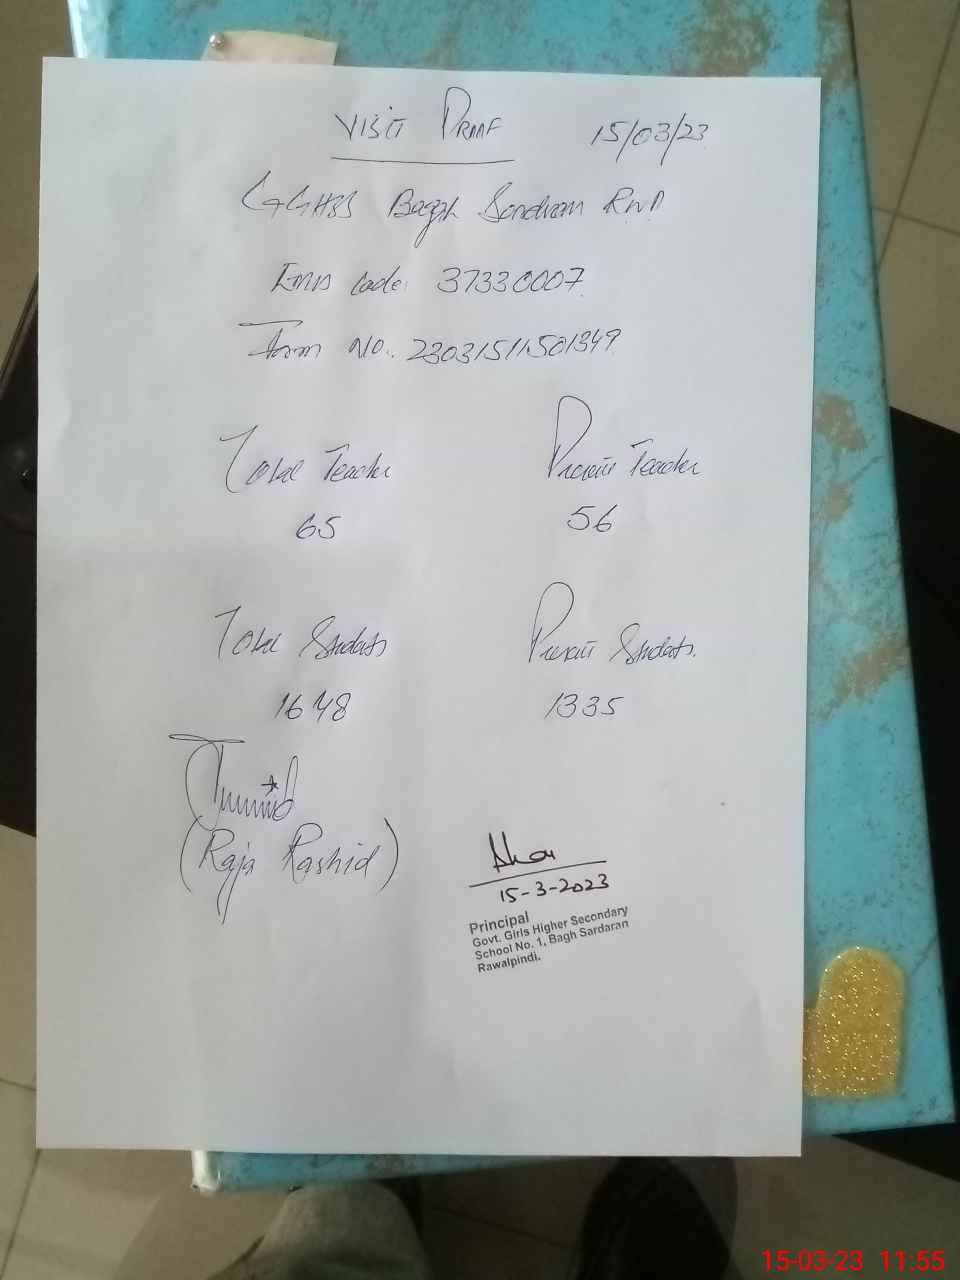 VISIT PROOF 15/03/23
GGHSS Bagh Sardaran RWP
EMIS Code: 37330007
Form No. 23031511501349
Total Teacher Present Teacher
65 56
Total Students Present Students.
1648 1335
(Raja Rashid)
15-3-2023
Principal
Govt. Girls Higher Secondary
School No. 1, Bagh Sardaran
Rawalpindi.
15-03-23 11:55